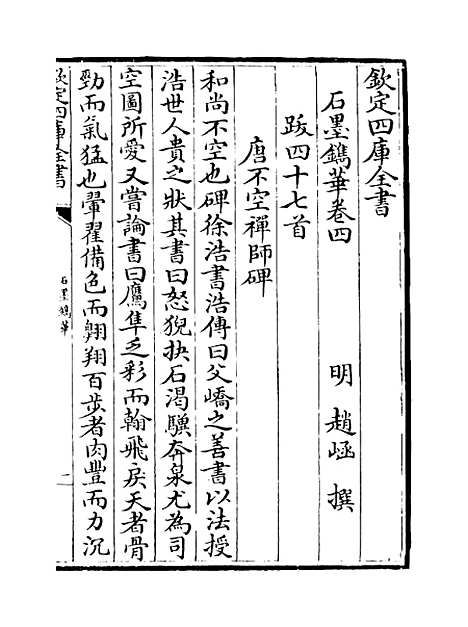 欽定四庫全書
石墨鐫華卷四
明 趙崡 撰
跋四十七首
唐不空禪師碑
和尚不空也碑徐浩書浩傳曰父嶠之善書以法授
浩世人貴之狀其書曰怒猊抉石渴驥奔泉尤為司
空圖所愛又嘗論書曰鷹隼乏彩而翰飛戾天者骨
勁而氣猛也翬翟備色而翺翔百步者肉豐而力沉
欽定四庫全書
石墨鐫華
一